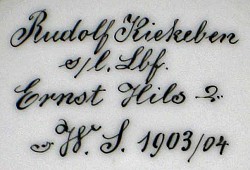 Rudolf Kiekeben
s/l. Lbf.
Ernst Hils
W. S. 1903/04